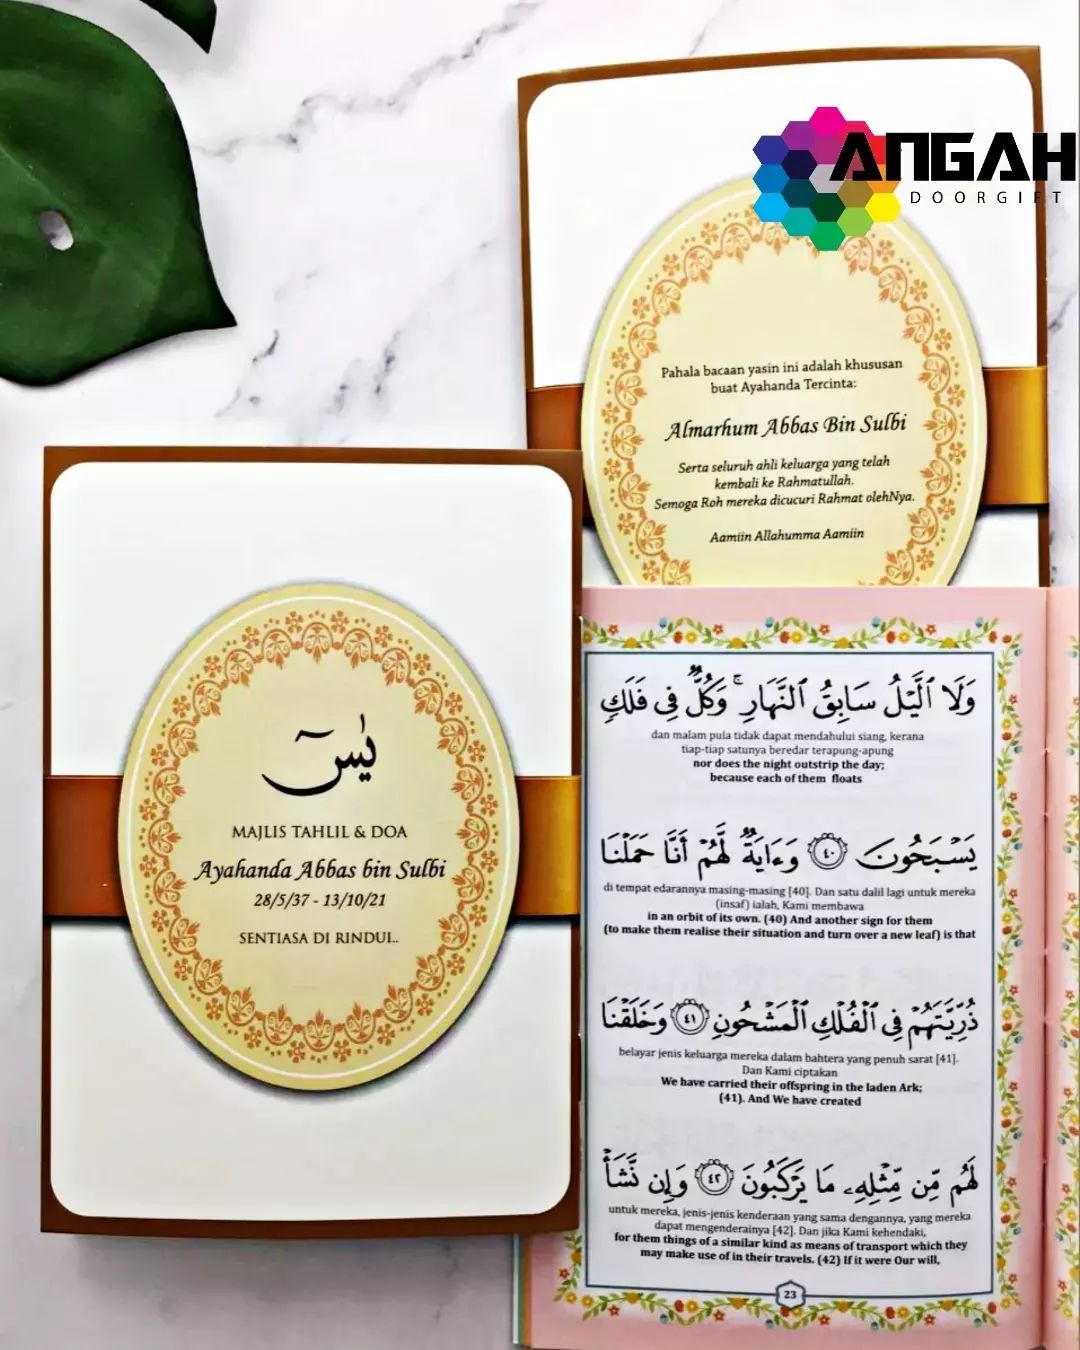 ANGAH
DOORGIFT
Pahala bacaan yasin ini adalah khususan
buat Ayahanda Tercinta:
Almarhum Abbas Bin Sulbi
Serta seluruh ahli keluarga yang telah
kembali ke Rahmatullah.
Semoga Roh mereka dicucuri Rahmat olehNya.
Aamiin Allahumma Aamiin
يٰسٓ
MAJLIS TAHLIL & DOA
Ayahanda Abbas bin Sulbi
28/5/37 - 13/10/21
SENTIASA DI RINDUI..
وَلَا ٱلَّيْلُ سَابِقُ ٱلنَّهَارِ ۚ وَكُلٌّ فِى فَلَكٍ
dan malam pula tidak dapat mendahului siang, kerana
tiap-tiap satunya beredar terapung-apung
nor does the night outstrip the day;
because each of them floats
يَسْبَحُونَ ٤٠ وَءَايَةٌ لَّهُمْ أَنَّا حَمَلْنَا
di tempat edarannya masing-masing [40]. Dan satu dalil lagi untuk mereka
(insaf) ialah, Kami membawa
in an orbit of its own. (40) And another sign for them
(to make them realise their situation and turn over a new leaf) is that
ذُرِّيَّتَهُمْ فِى ٱلْفُلْكِ ٱلْمَشْحُونِ ٤١ وَخَلَقْنَا
belayar jenis keluarga mereka dalam bahtera yang penuh sarat [41].
Dan Kami ciptakan
We have carried their offspring in the laden Ark;
(41). And We have created
لَهُم مِّن مِّثْلِهِۦ مَا يَرْكَبُونَ ٤٢ وَإِن نَّشَأْ
untuk mereka, jenis-jenis kenderaan yang sama dengannya, yang mereka
dapat mengenderainya [42]. Dan jika Kami kehendaki,
for them things of a similar kind as means of transport which they
may make use of in their travels. (42) If it were Our will,
23